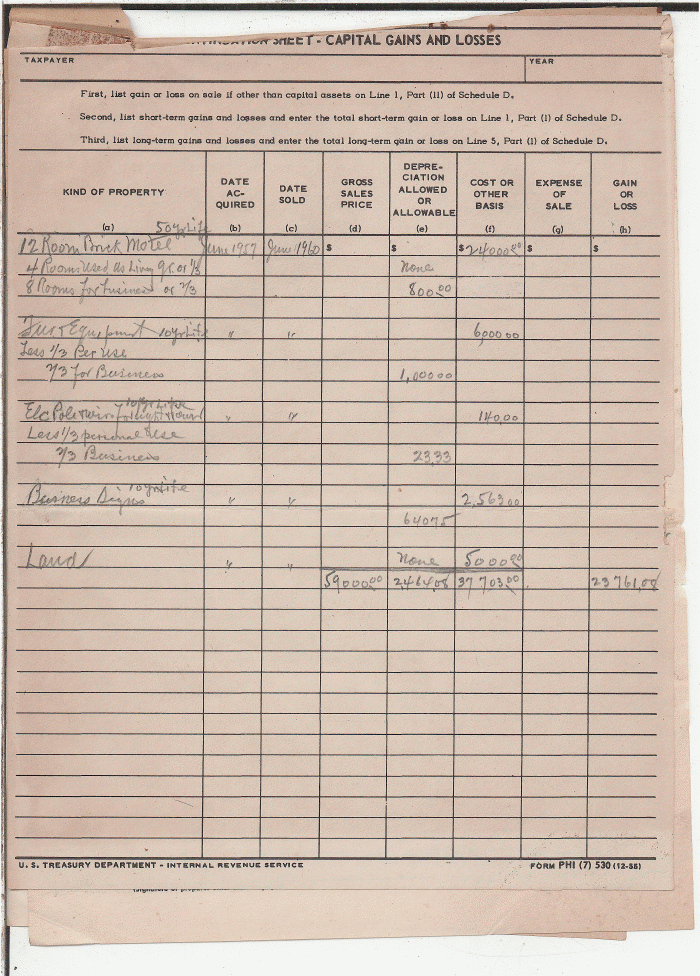 SHEET - CAPITAL GAINS AND LOSSES
TAXPAYER YEAR
First, list gain or loss on sale if other than capital assets on Line 1, Part (II) of Schedule D.
Second, list short-term gains and losses and enter the total short-term gain or loss on Line 1, Part (I) of Schedule D.
Third, list long-term gains and losses and enter the total long-term gain or loss on Line 5, Part (I) of Schedule D.
KIND OF PROPERTY DATE AC-QUIRED DATE SOLD GROSS SALES PRICE DEPRE-CIATION ALLOWED OR ALLOWABLE COST OR OTHER BASIS EXPENSE OF SALE GAIN OR LOSS
(a) (b) (c) (d) (e) (f) (g) (h)
50 yr Life
12 Room Brick Motel June 1957 June 1960 $ $ $ 24000.00 $
4 Rooms Used As Living or 1/3 None
8 Rooms for business or 2/3 800.00
Equipment 10 yr Life " " 6,000.00
Less 1/3 Per Use
2/3 for Business 1,000.00
10 yr Life
Elc Pole + wire for light " " 140.00
Less 1/3 personal Use
2/3 Business 23.33
10 yr Life
Business Signs " " 2,563.00
640.75
Land " " None 5000.00
59000.00 2464.08 37703.00 23761.08
U. S. TREASURY DEPARTMENT - INTERNAL REVENUE SERVICE FORM PHI (7) 530 (12-55)